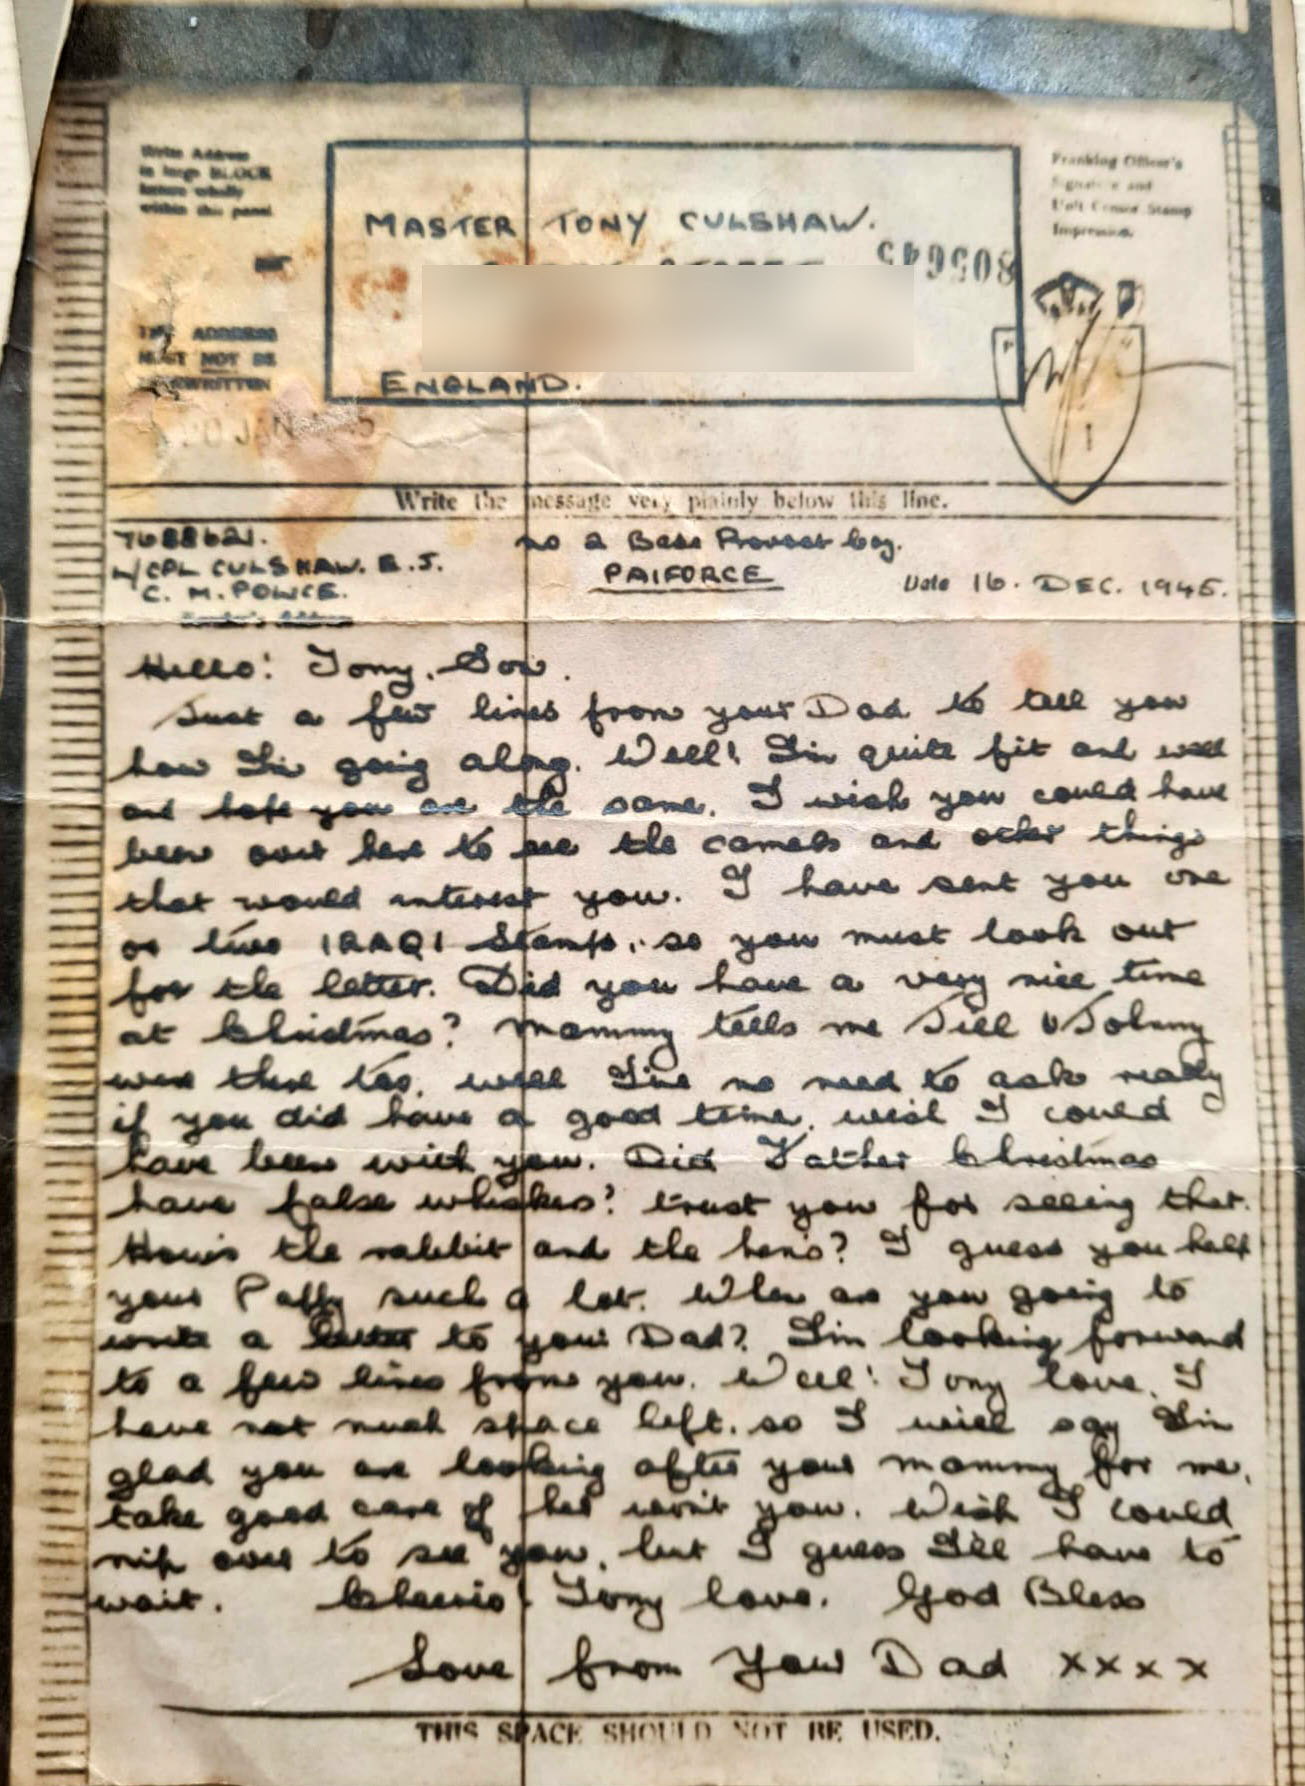 Write Address
in large BLOCK
letters wholly
within this panel
THE ADDRESS
MUST NOT BE
TYPEWRITTEN
MASTER TONY CULSHAW.
805645
ENGLAND.
Franking Officer's
Signature and
Unit Censor Stamp
Impression.
Write the message very plainly below this line.
7688621.
L/CPL CULSHAW. E. J.
C. M. POLICE.
Sender's Address
No 2 Base Provost Coy.
PAIFORCE
Date 16. DEC. 1945.
Hello! Tony, Son.
Just a few lines from your Dad to tell you
how I'm going along. Well! I'm quite fit and well
and hope you are the same. I wish you could have
been over here to see the camels and other things
that would interest you. I have sent you one
or two IRAQI Stamps, so you must look out
for the letter. Did you have a very nice time
at Christmas? Mammy tells me Jill & Johnny
were there too, well I've no need to ask really
if you did have a good time, wish I could
have been with you. Did Father Christmas
have false whiskers? trust you for seeing that.
How's the rabbit and the hens? I guess you help
your Paffy such a lot. When are you going to
write a letter to your Dad? I'm looking forward
to a few lines from you. Well! Tony love, I
have not much space left, so I will say I'm
glad you are looking after your mammy for me,
take good care of her won't you. Wish I could
nip over to see you, but I guess I'll have to
wait. Cheerio! Tony love. God Bless
Love from Your Dad xxxx
THIS SPACE SHOULD NOT BE USED.